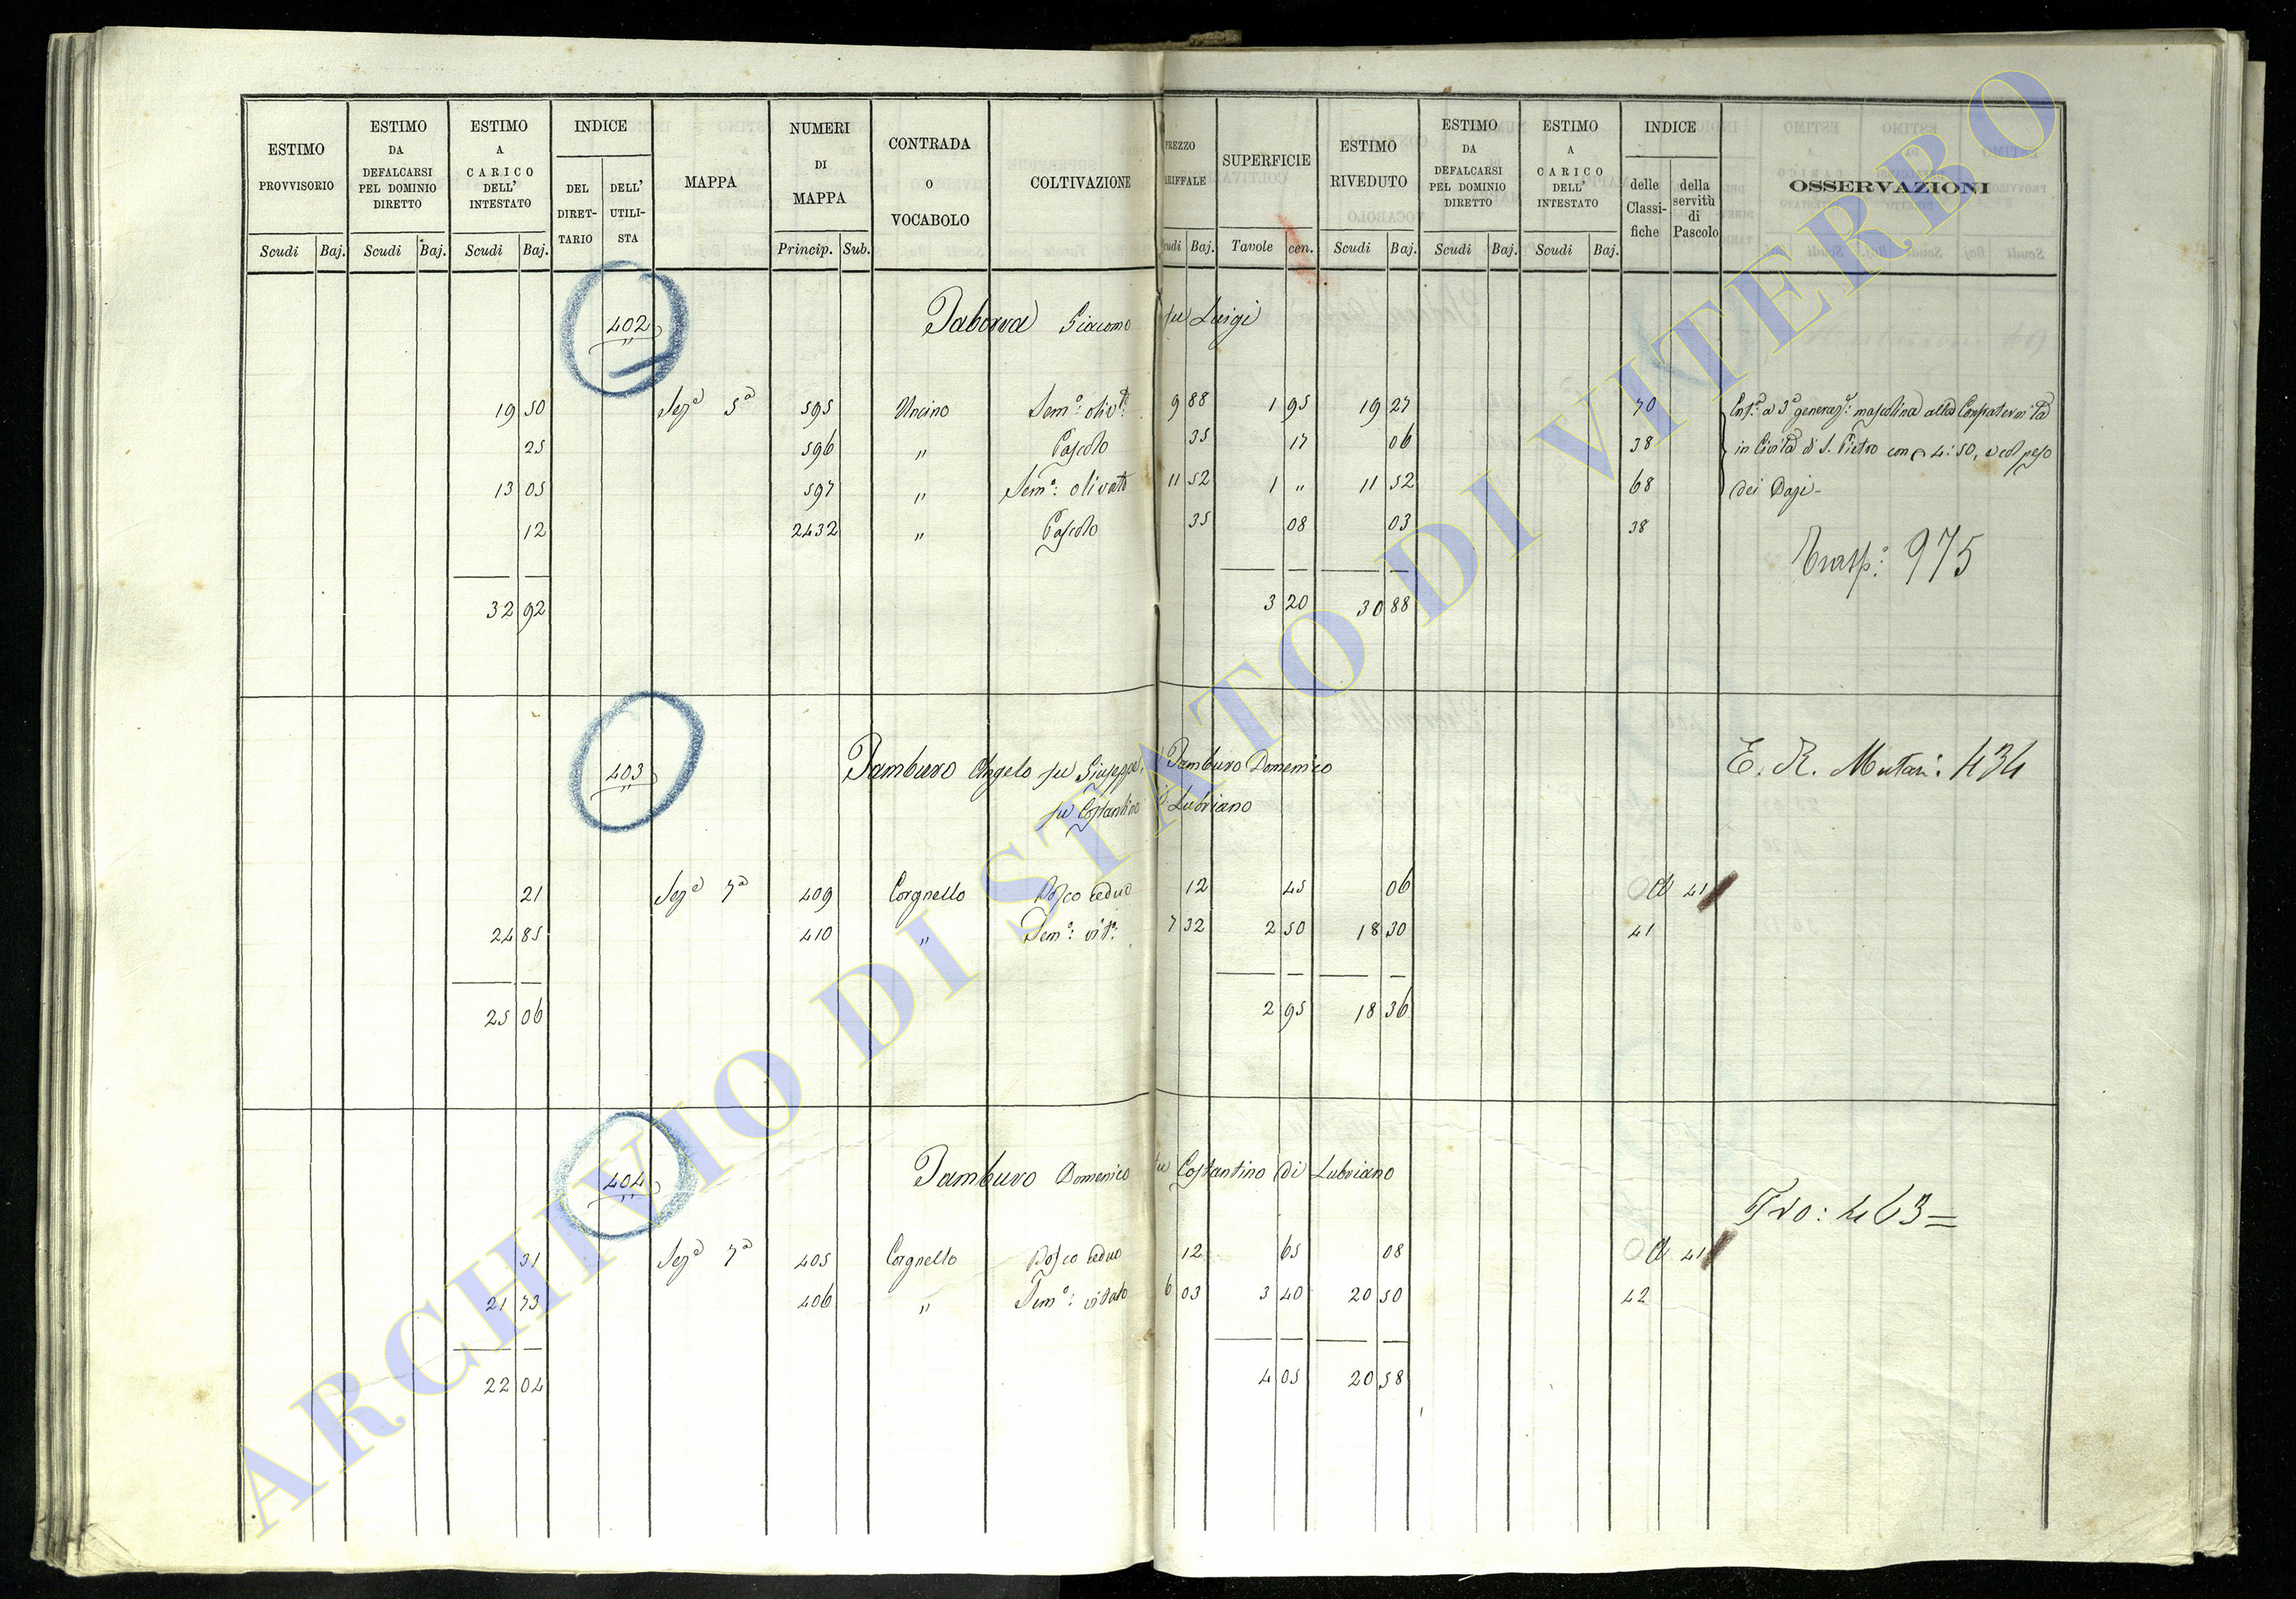 ESTIMO PROVVISORIO
Scudi Baj.
ESTIMO DA DEFALCARSI PEL DOMINIO DIRETTO
Scudi Baj.
ESTIMO A CARICO DELL' INTESTATO
Scudi Baj.
INDICE
DEL DIRET-TARIO
DELL' UTILI-STA
MAPPA
NUMERI DI MAPPA
Princip. Sub.
CONTRADA O VOCABOLO
COLTIVAZIONE
PREZZO
ARIFFALE
udi Baj.
SUPERFICIE
Tavole cen.
ESTIMO RIVEDUTO
Scudi Baj.
ESTIMO DA DEFALCARSI PEL DOMINIO DIRETTO
Scudi Baj.
ESTIMO A CARICO DELL' INTESTATO
Scudi Baj.
INDICE
delle Classi-fiche
della servitù di Pascolo
OSSERVAZIONI
402 Taborra Giacomo fu Luigi
19 50 Sezª 5ª 595 Uncino Semº: olivtº: 9 88 1 95 19 27 70
25 596 " Pascolo 35 17 06 38
13 05 597 " Semº: olivato 11 52 1 " 11 52 68
12 2432 " Pascolo 35 08 03 38
32 92 3 20 30 88
in Civita di S. Pietro con 4:50, e col peso
dei Dazi-
Trasp: 975
403 Tamburo Angelo fu Giuseppe, Tamburo Domenico
fu Costantino di Lubriano
E. R. Mutaz: 434
21 Sezª 7ª 409 Corgnello Bosco ceduo 12 45 06 41
24 85 410 " Semº: vitº: 7 32 2 50 18 30 41
25 06 2 95 18 36
404 Tamburo Domenico fu Costantino di Lubriano
Tro: 463=
31 Sezª 7ª 405 Corgnello Bosco ceduo 12 65 08 41
21 73 406 " Semº: vitato 6 03 3 40 20 50 42
22 04 4 05 20 58
ARCHIVIO DI STATO DI VITERBO